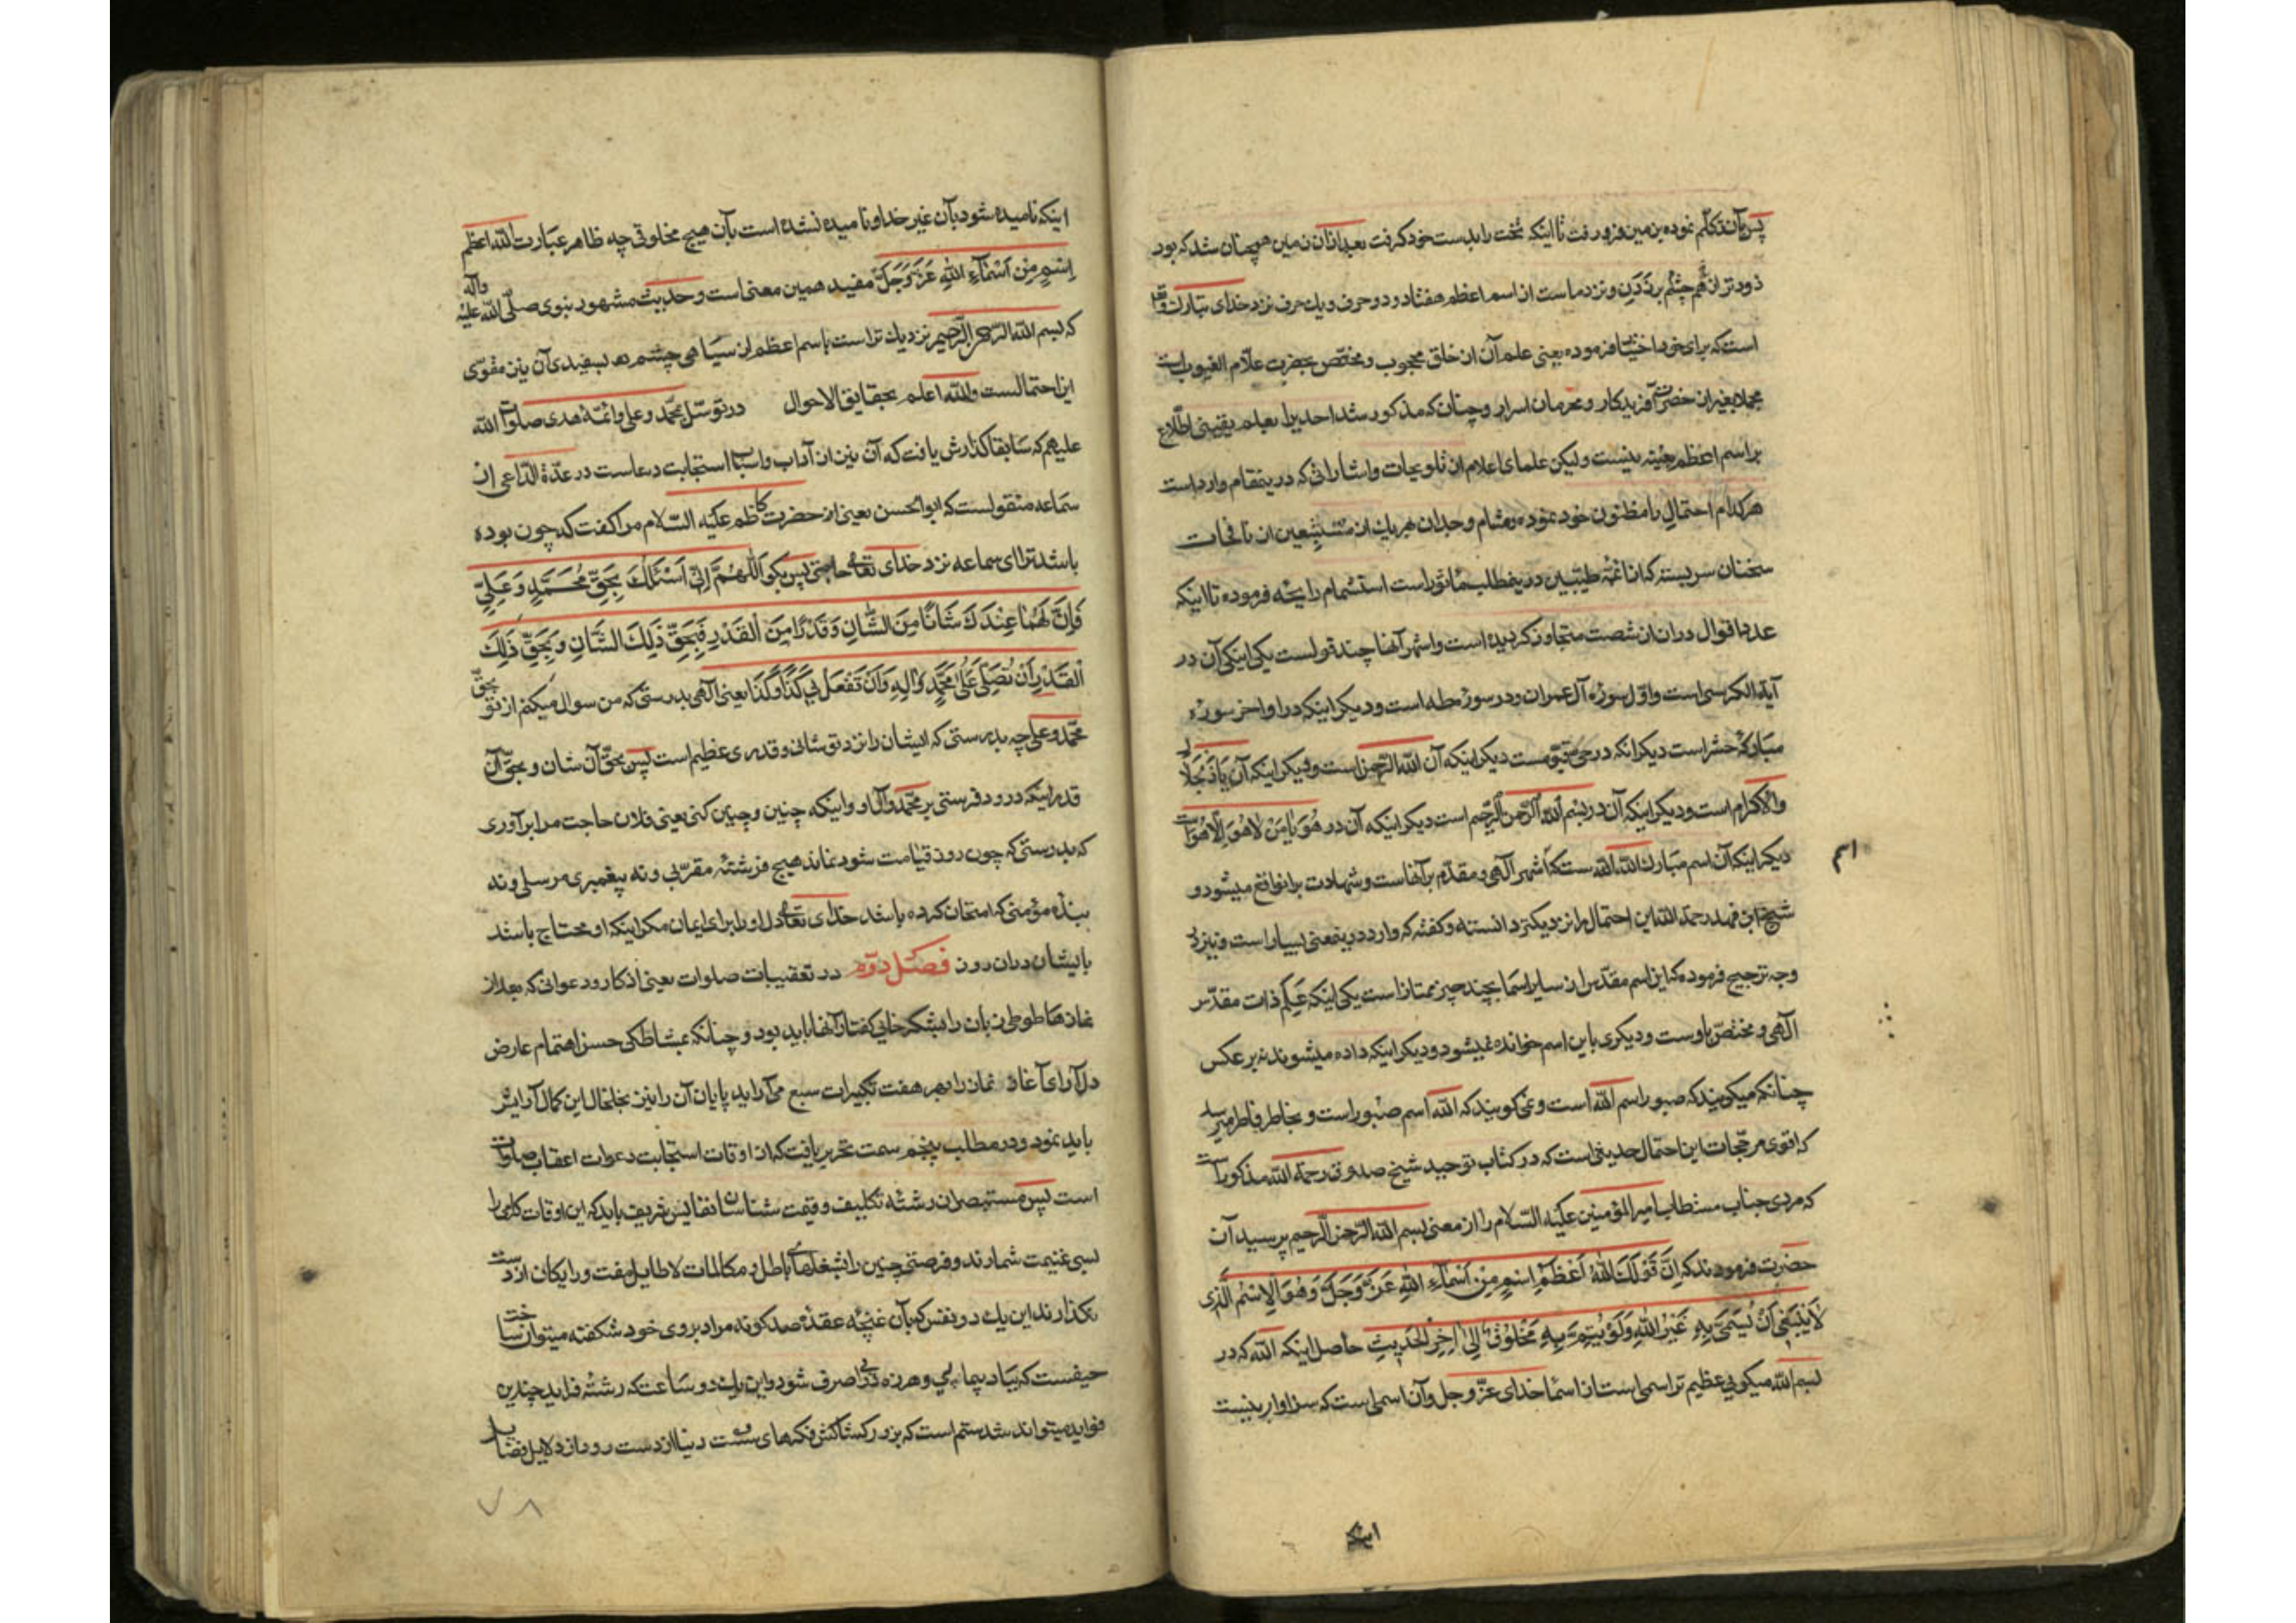 پس بآن تکلّم نموده بزمین فرو رفت تا اینکه تخت را بدست خود کرفت بعد ازان زمین همچنان شد که بود
زودتر از هم چشم بر زدن و نزد ماست از اسم اعظم هفتاد و دو حرف و یک حرف نزد خدای تبارک وتع
است که برای خود اختیار فرموده یعنی علم آن از خلق محجوب و مختصّ بحضرت علّام الغیوب است
مجملا بغیر از حضرت آفریدکار و محرمان اسرار و چنانکه مذکور شد احدیرا بعلم یقینی اطّلاع
بر اسم اعظم نیست ولیکن علمای اعلام از تلویحات و اشاراتی که درینمقام وارد است
هرکدام احتمالی را مظنون خود نموده و مشام وجدان هریک از متتبّعین از نافجات
سخنان سربسته که از ائمّه طیّبین درینمطلب ماثور است استشمام رایحه فرموده تا اینکه
عدد اقوال دران از شصت متجاوز کردیده است و اشهر آنها چند قولست یکی اینکه آن در
آیة الکرسی است و اوّل سوره آل عمران و در سوره طه است و دیکر اینکه در اواخر سوره
مبارکه حشر است دیکر انکه در حیّ قیّومست دیکر اینکه آن الله الرّحمن است و دیکر اینکه آن یا ذا الجلال
والاکرام است و دیکر اینکه آن در بسم الله الرّحمن الرّحیم است دیکر اینکه آن در هو یا من لا هو الّا هو است
دیکر اینکه آن اسم مبارک الله الله ست که اشهر اسم آلهی و مقدّم بر آنهاست و شهادت بران واقع میشود و
شیخ ابن فهد رحمة الله این احتمال را نزدیکتر دانسته و کفته که وارد درینمعنی بسیار است و نیز در
وجه ترجیح فرموده که این اسم مقدّس از سایر اسما بچند چیز ممتاز است یکی اینکه علم ذات مقدّس
آلهی و مختصّ باوست و دیکری باین اسم خوانده نمیشود و دیکر اینکه داده میشوند نه برعکس
چنانکه میکویند که صبور اسم الله است و نمی کویند که الله اسم صبور است و بخاطر فاطر میرسد
که اقوی مرجّحات این احتمال حدیثی است که در کتاب توحید شیخ صدوق رحمة الله مذکور است
که مردی جناب مستطاب امیر المؤمنین علیه السّلام را از معنی بسم الله الرّحمن الرّحیم پرسید آن
حضرت فرمودند که اِنَّ قَوْلَکَ اللهُ اَعْظَمُ اِسْمٍ مِنْ اَسْمآءِ اللهِ عَزَّ وَجَلَّ وَهُوَ الْاِسْمُ الَّذی
لَا یَنْبَغی اَنْ یُسَمّی بِهِ غَیْرُ اللهِ وَلَمْ یَتَسَمَّ بِهِ مَخْلُوقٌ اِلی اخِرِ الْحَدیثِ حاصل اینکه الله که در
بسم الله میکویی عظیم تر اسمی است از اسماء خدای عزّ وجل و آن اسمی است که سزاوار نیست
اینکه
اینکه نامیده شود بآن غیر خدا و نامیده نشده است بآن هیچ مخلوقی چه ظاهر عبارت الله اعظم
اِسْمٍ مِنْ اَسْمآءِ اللهِ عَزَّ وَجَلَّ مفید همین معنی است و حدیث مشهور نبوی صلّی الله علیه وآله
که بسم الله الرّحمن الرّحیم نزدیک تر است باسم اعظم از سیاهی چشم به سفیدی آن نیز مقوّی
این احتمالست والله اعلم بحقایق الاحوال در توسّل بمحمّد و علی و ائمّه هدی صلوات الله
علیهم که سابقا کذارش یافت که آن نیز از آداب و اسباب استجابت دعاست در عدّة الدّاعی از
سماعه منقولست که ابو الحسن یعنی از حضرت کاظم علیه السّلام مرا کفت که چون بوده
باشد ترا ای سماعه نزد خدای تعالی حاجتی پس بکو اَللّهُمَّ اِنّی اَسْئَلُکَ بِحَقِّ مُحَمَّدٍ وَعَلِیٍّ
فَاِنَّ لَهُما عِنْدَکَ شَانًا مِنَ الشَّانِ وَقَدْرًا مِنَ الْقَدْرِ فَبِحَقِّ ذلِکَ الشَّانِ وَبِحَقِّ ذلِکَ
الْقَدْرِ اَنْ تُصَلِّیَ عَلی مُحَمَّدٍ وَالِهِ وَاَنْ تَفْعَلَ بی کَذا وَکَذا یعنی آلهی بدرستی که من سوال میکنم از تو بحقّ
محمّد و علی چه بدرستی که ایشان را نزد تو شانی و قدری عظیم است پس بحقّ آن شان و بحقّ آن
قدر اینکه درود فرستی بر محمّد و آل او و اینکه چنین و چنین کنی یعنی فلان حاجت مرا برآوری
که بدرستی که چون روز قیامت شود نماند هیچ فرشته مقرّبی و نه پیغمبری مرسلی و نه
بنده مؤمنی که امتحان کرده باشد خدای تعالی دل او را برای ایمان مکر اینکه او محتاج باشد
بایشان دران روز فصل دوّم در تعقیبات صلوات یعنی اذکار و دعوانی که بعد از
نمازها طوطی زبان را بشکرخانی کفتار آنها باید بود و چنانکه بمشاطکی حسن اهتمام عارض
دلآرای آغاز نماز را بهر هفت تکبیرات سبع می آراید پایان آن را نیز بخلخال این کمال آرایش
باید نمود و در مطلب پنجم سمت تحریر یافت که از اوقات استجابت دعوات اعقاب صلوات
است پس مستبصران رشته تکلیف و قیمت شناسان نفایس شریف باید که این اوقات کلمی را
بسی غنیمت شمارند و فرصتی چنین را بشغلهای باطل و مکالمات لاطایل مفت و رایکان از دست
نکذارند این یک دو نفس که بآن غنچه عقده صد کونه مراد بروی خود شکفته میتوان ساخت
حیفست که بباد پیمایی و هرزه درایی صرف شود و این یک دو ساعت که رشته فراید چندین
فواید میتواند شد ستم است که بزور کشاکش فکرهای سست دنیا از دست رود از دلایل فضایل
۷۸